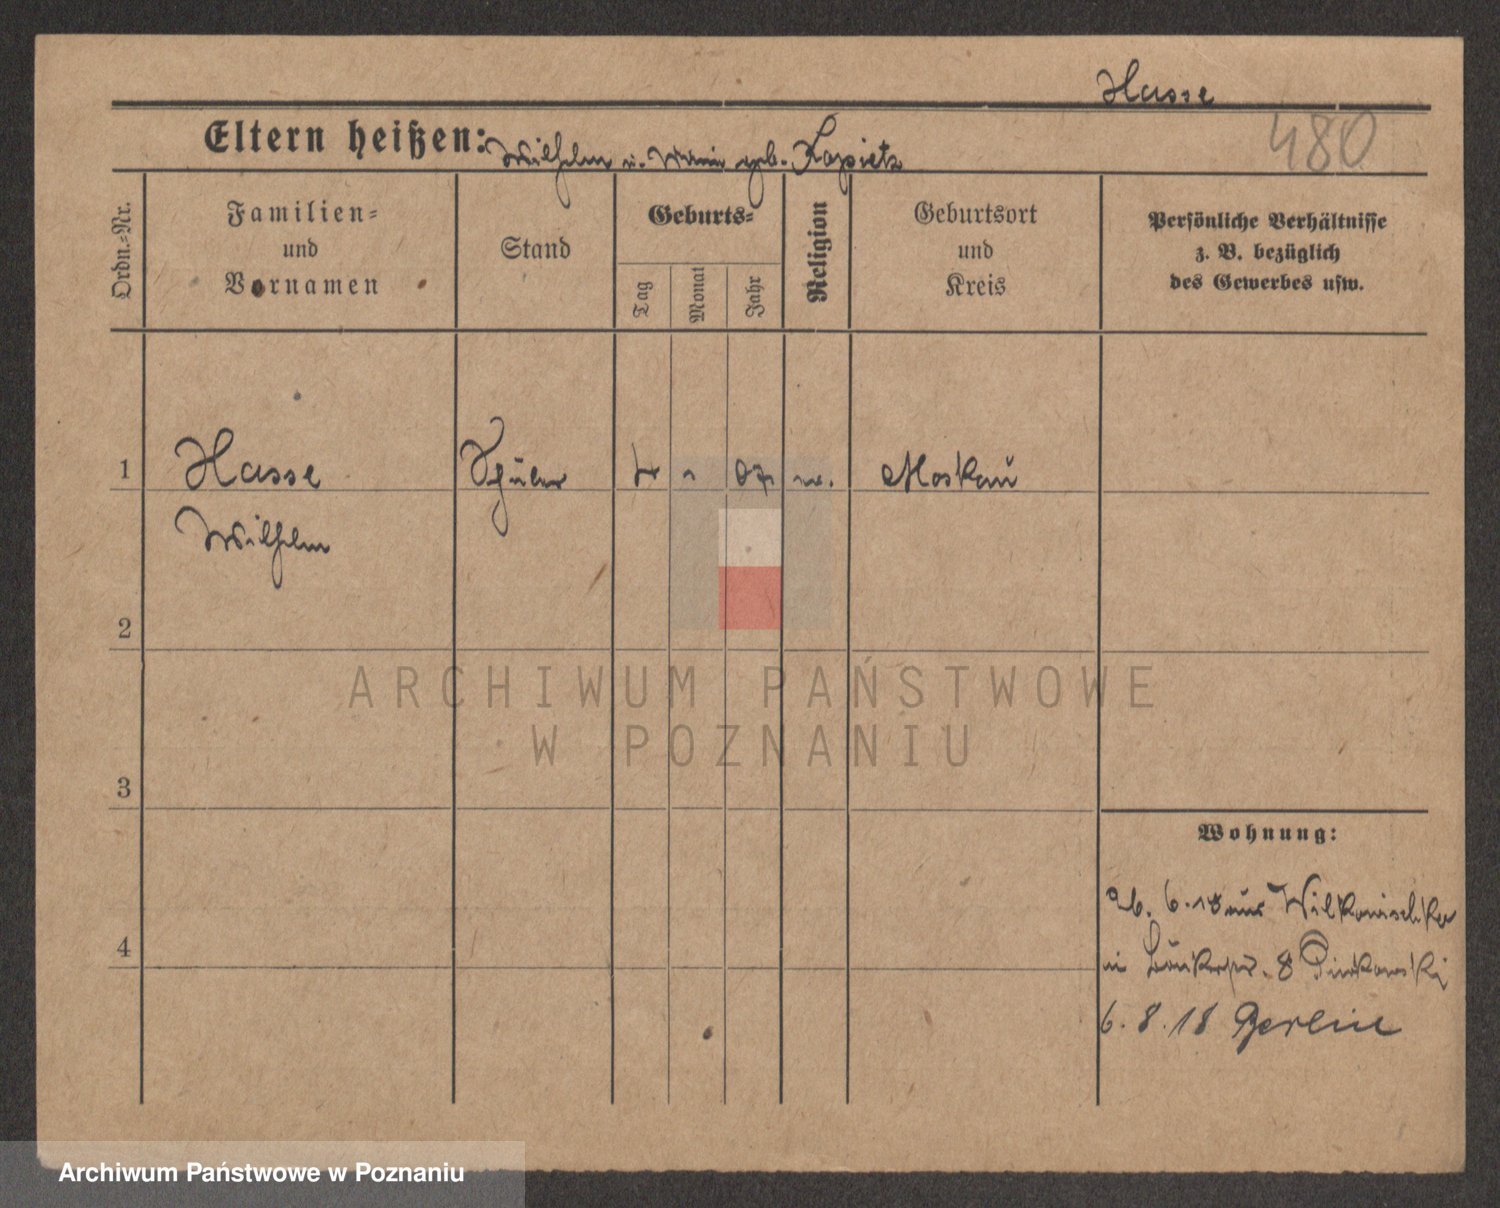 Hasse
Eltern heißen: Wilhelm u. geb.
480
Ordn.-Nr.
Familien-
und
Vornamen
Stand
Geburts-
Tag
Monat
Jahr
Religion
Geburtsort
und
Kreis
Persönliche Verhältnisse
z. B. bezüglich
des Gewerbes usw.
1
Hasse
Schüler
07
Moskau
Wilhelm
2
ARCHIWUM PAŃSTWOWE
W POZNANIU
3
Wohnung:
6. 18 aus
4
8
6. 8. 18 Berlin
Archiwum Państwowe w Poznaniu